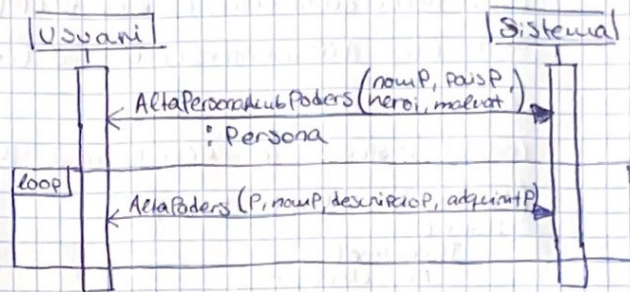 Usuari
Sistema
AltaPersonaAmbPoders (nomP, paisP,
heroi, malvat)
: Persona
loop
AltaPoders (P, nomP, descripcioP, adquiritP)